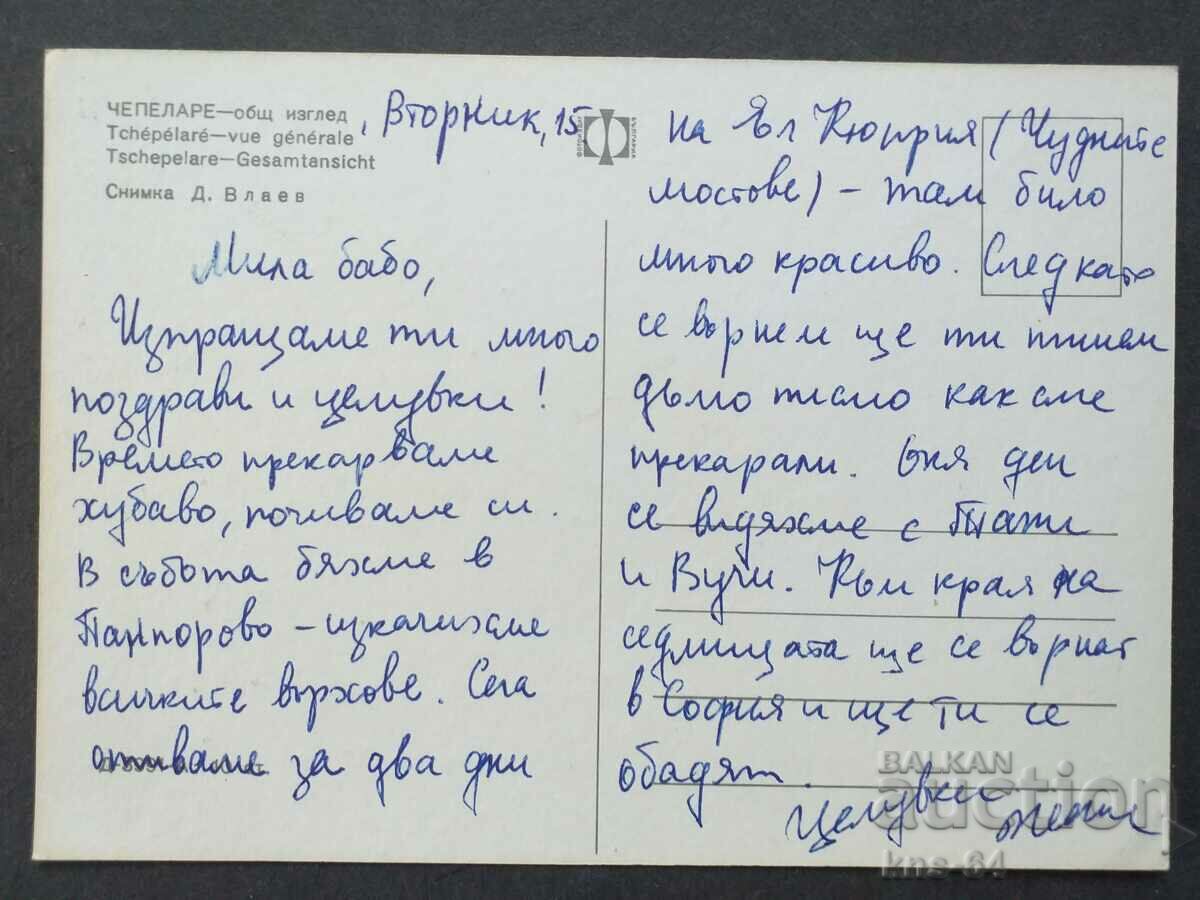 ЧЕПЕЛАРЕ—общ изглед
Tchépélaré—vue générale
Tschepelare—Gesamtansicht
Снимка Д. Влаев
, Вторник, 15
Мила бабо,
Изпращаме ти много
поздрави и целувки!
Времето прекарваме
хубаво, почиваме си.
В събота бяхме в
Пампорово – изкачихме
всичките върхове. Сега
отиваме за два дни
на Ягл Кюприя (Чудните
мостове) – там било
много красиво. След като
се върнем ще ти пишем
дълго писмо как сме
прекарали. Оня ден
се видяхме с
и Вучи. Към края на
седмицата ще се върнат
в София и ще ти се
обадят.
Целувки
BALKAN
auction
kns-64